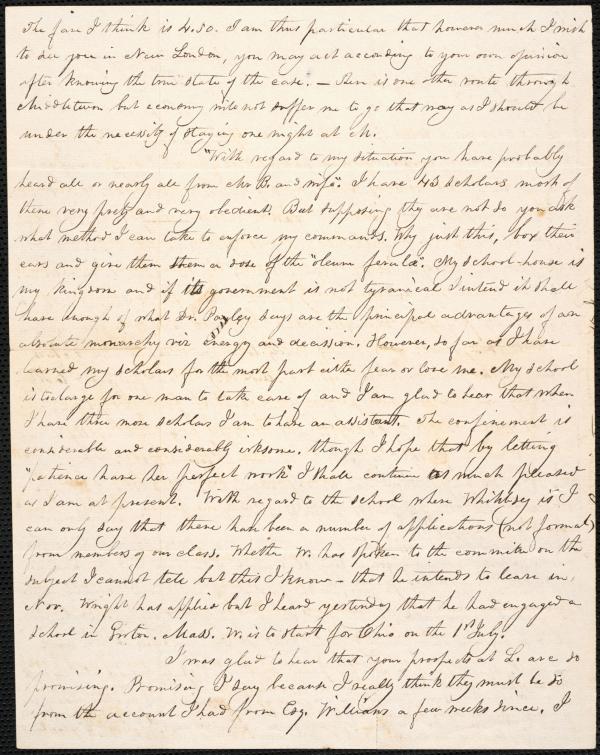 The fare I think is 4.50. I am thus particular that however much I wish
to see you in New London, you may act according to your own opinion
after knowing the true state of the case. — There is one other route through
Middletown but economy will not suffer me to go that way as I should be
under the necessity of staying one night at M.
"With regard to my situation you have probably
heard all or nearly all from Mr B. and wife". I have 43 scholars most of
them very pretty and very obedient. But supposing they are not so you ask
what method I can take to enforce my commands. Why just this, box their
ears and give them a dose of the "oleum ferulæ". My school-house is
my kingdom and if its government is not tyranical I intend it shall
have enough of what Dr. Payley says are the principal advantages of an
absolute monarchy viz energy and decission. However, so far as I have
learned my scholars for the most part either fear or love me. My school
is too large for one man to take care of and I am glad to hear that when
I have three more scholar I am to have an assistant. The confinement is
considerable and considerably irksome. though I hope that by letting
"patience have her perfect work" I shall continue as much pleased
as I am at present. With regard to the school where Whittlesey is I
can only say that there have been a number of applications (not formal)
from members of our class. Whether W. has spoken to the committee on the
subject I cannot tell but this I know — that he intends to leave in
Nov. Wright has applied but I heard yesterday that he had engaged a
school in Groton. Mass. W. is to start for Ohio on the 1st July.
I was glad to hear that your prospects at L. are so
promising. Promising I say because I really think they must be so
from the account I had from Esq. Williams a few weeks since. I